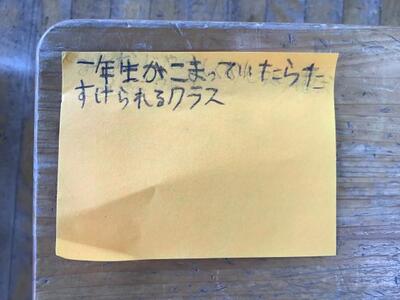 一年生がこまっていたらた
すけられるクラス